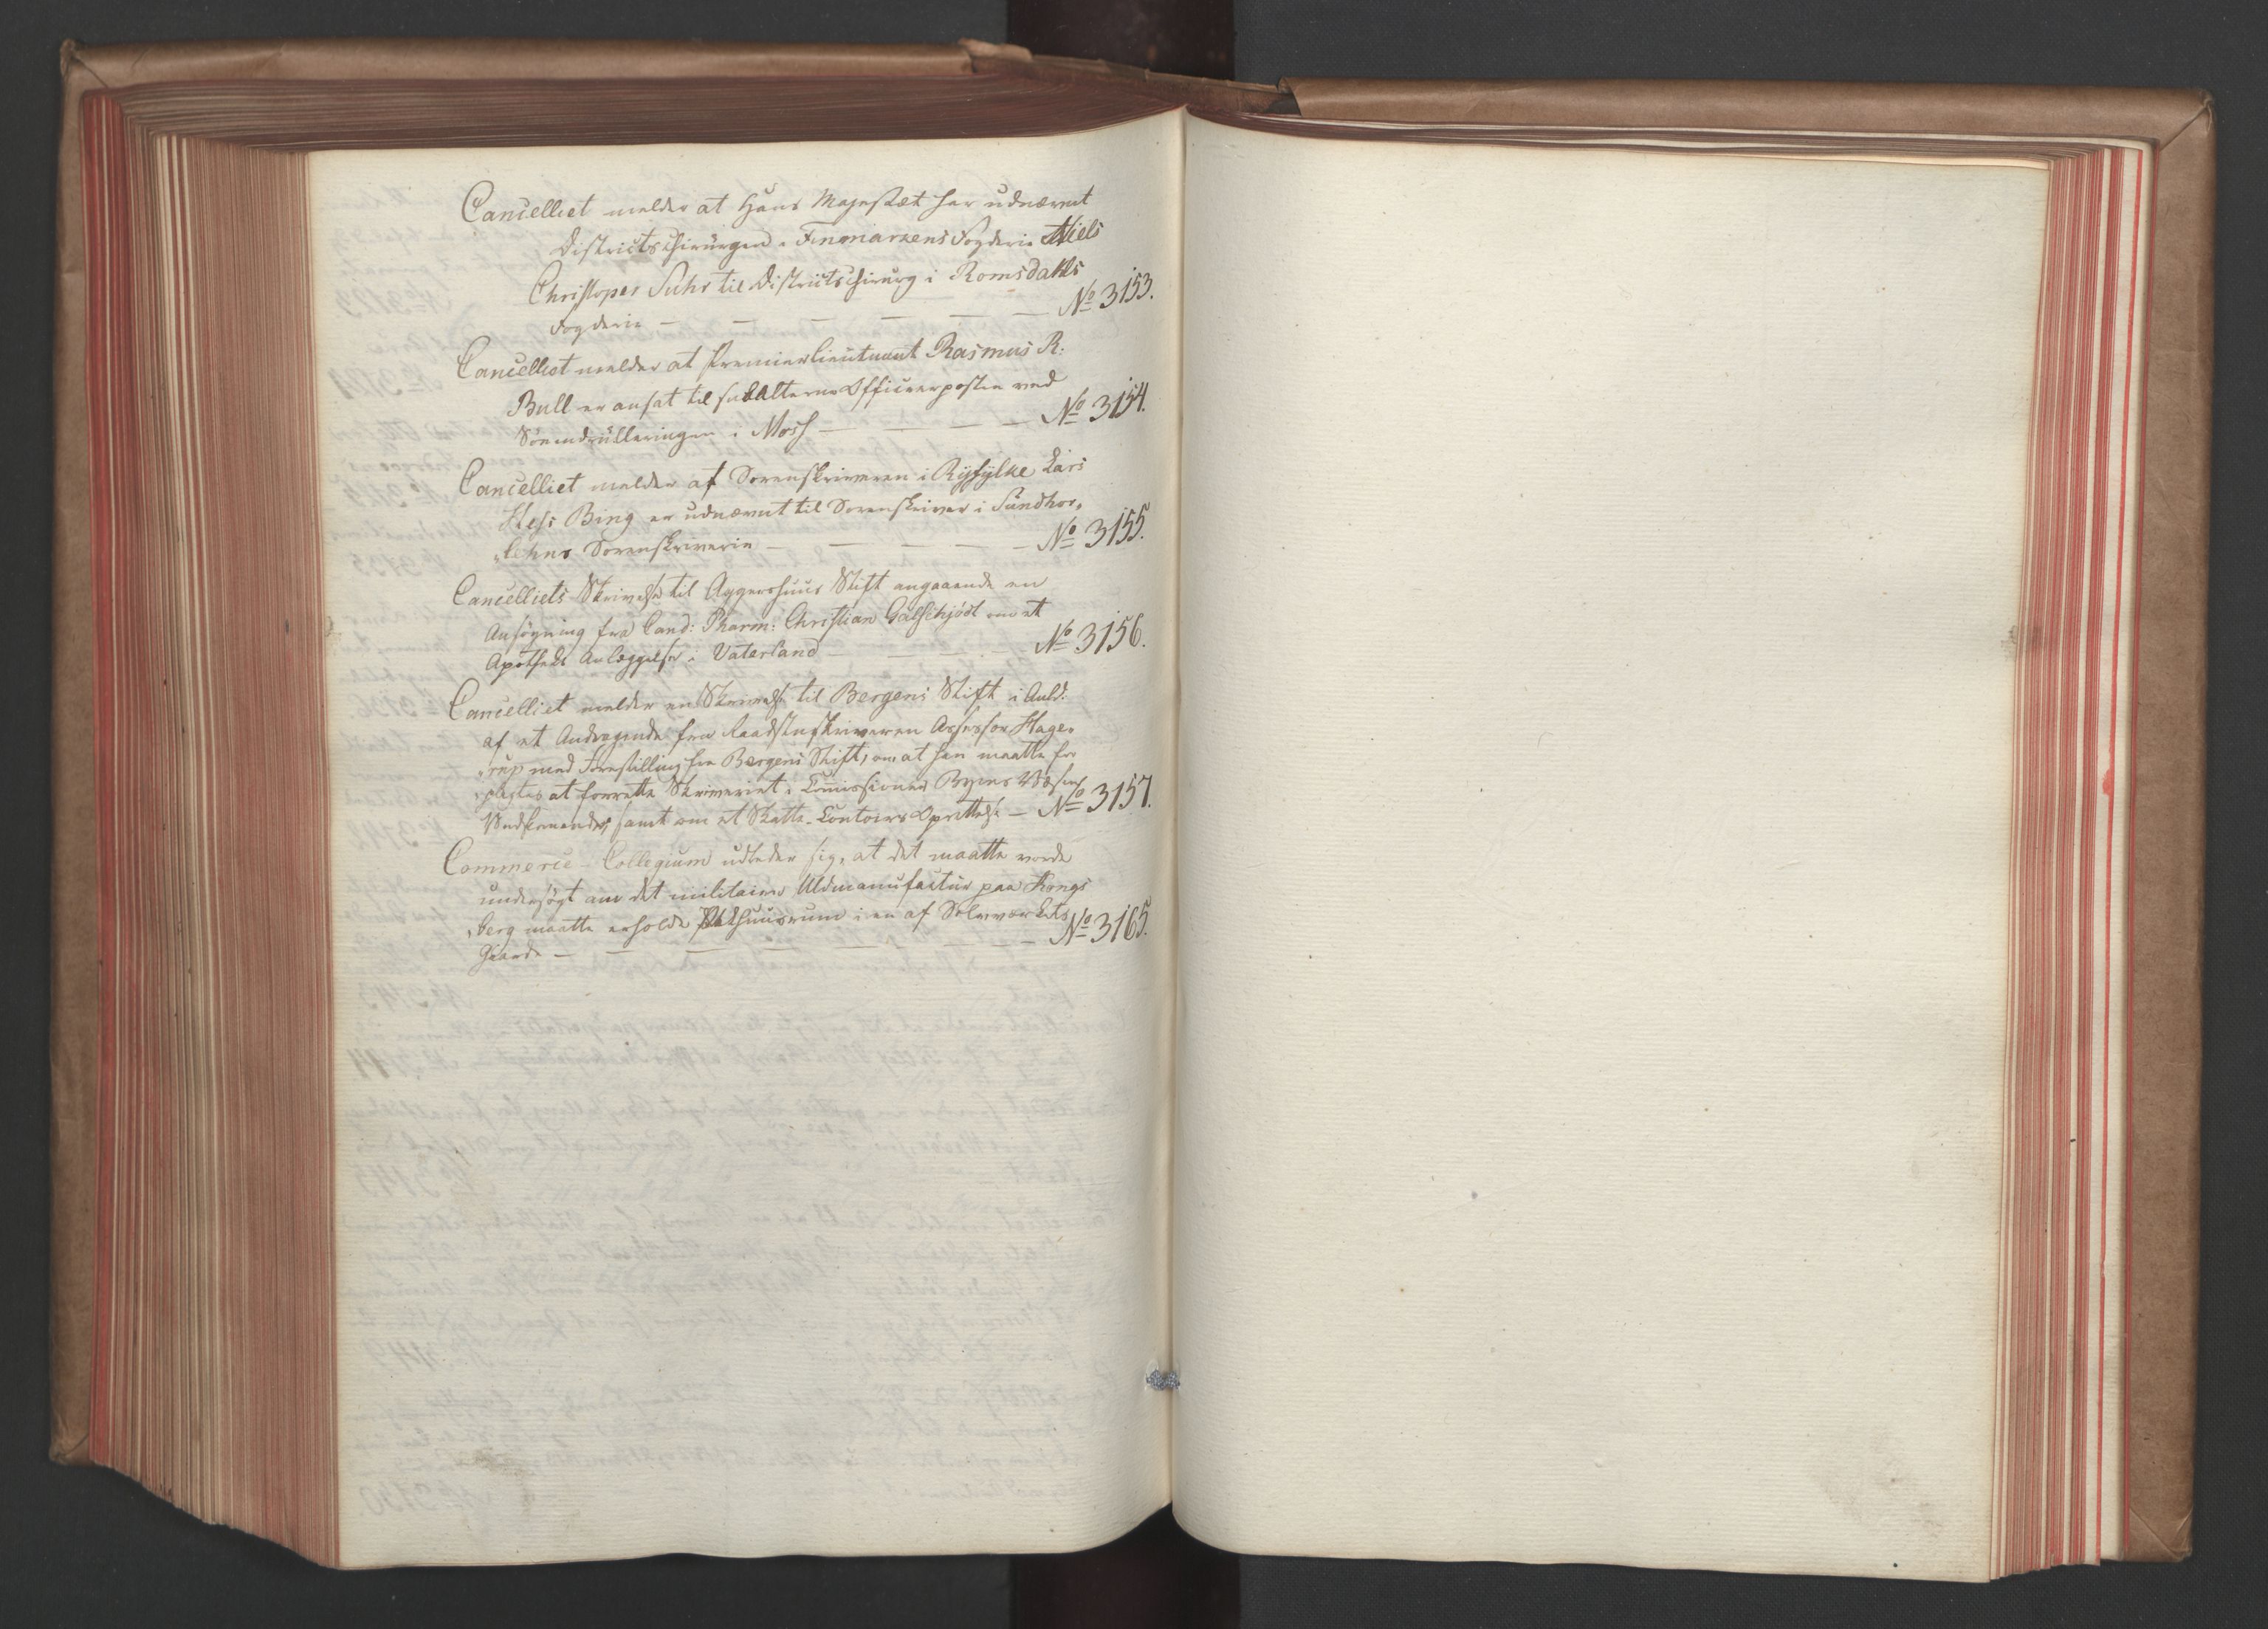 Cancelliet melder at Hans Majestæt har udnævnt
Districtschirurgen i Finmarkens Fogderie Niels
Christopher Suhr til Districtschirurg i Romsdahls
Fogderie — — — — — — No 3153.
Cancelliet melder at Premierlieutnant Rasmus R:
Bull er ansat til subAlterne Officeerposten ved
Söeindrulleringen i Moss — — — — No 3154.
Cancelliet melder at Sorenskriveren i Ryfylke Lars
Hess Bing er udnævnt til Sorenskriver i Sundhor„
„lehns Sorenskriverie — — — — — No 3155.
Cancelliets Skrivelse til Aggershuus Stift angaaende en
Ansögning fra Cand: Pharm: Christian Galschjödt om et
Apotheks Anlæggelse i Vaterland — — — No 3156.
Cancelliet melder en Skrivelse til Bergens Stift i Anld:
af et Andragende fra Raadstuskriveren Assessor Hage„
„rup med Forestilling fra Bergens Stift, om at han maatte for„
„pligtes at forrette Skriveriet i Commissioner Byens Væsen
Vedkommende, samt om et Skatte-Contoirs Oprettelse — No 3157.
Commerce-Collegium udbeder sig, at det maatte vorde
undersögt om det militaire Uldmanufactur paa Kongs
„berg maatte erholde Pakhuusrum i en af Sölvværkets
Gaarde — — — — — — — No 3165.